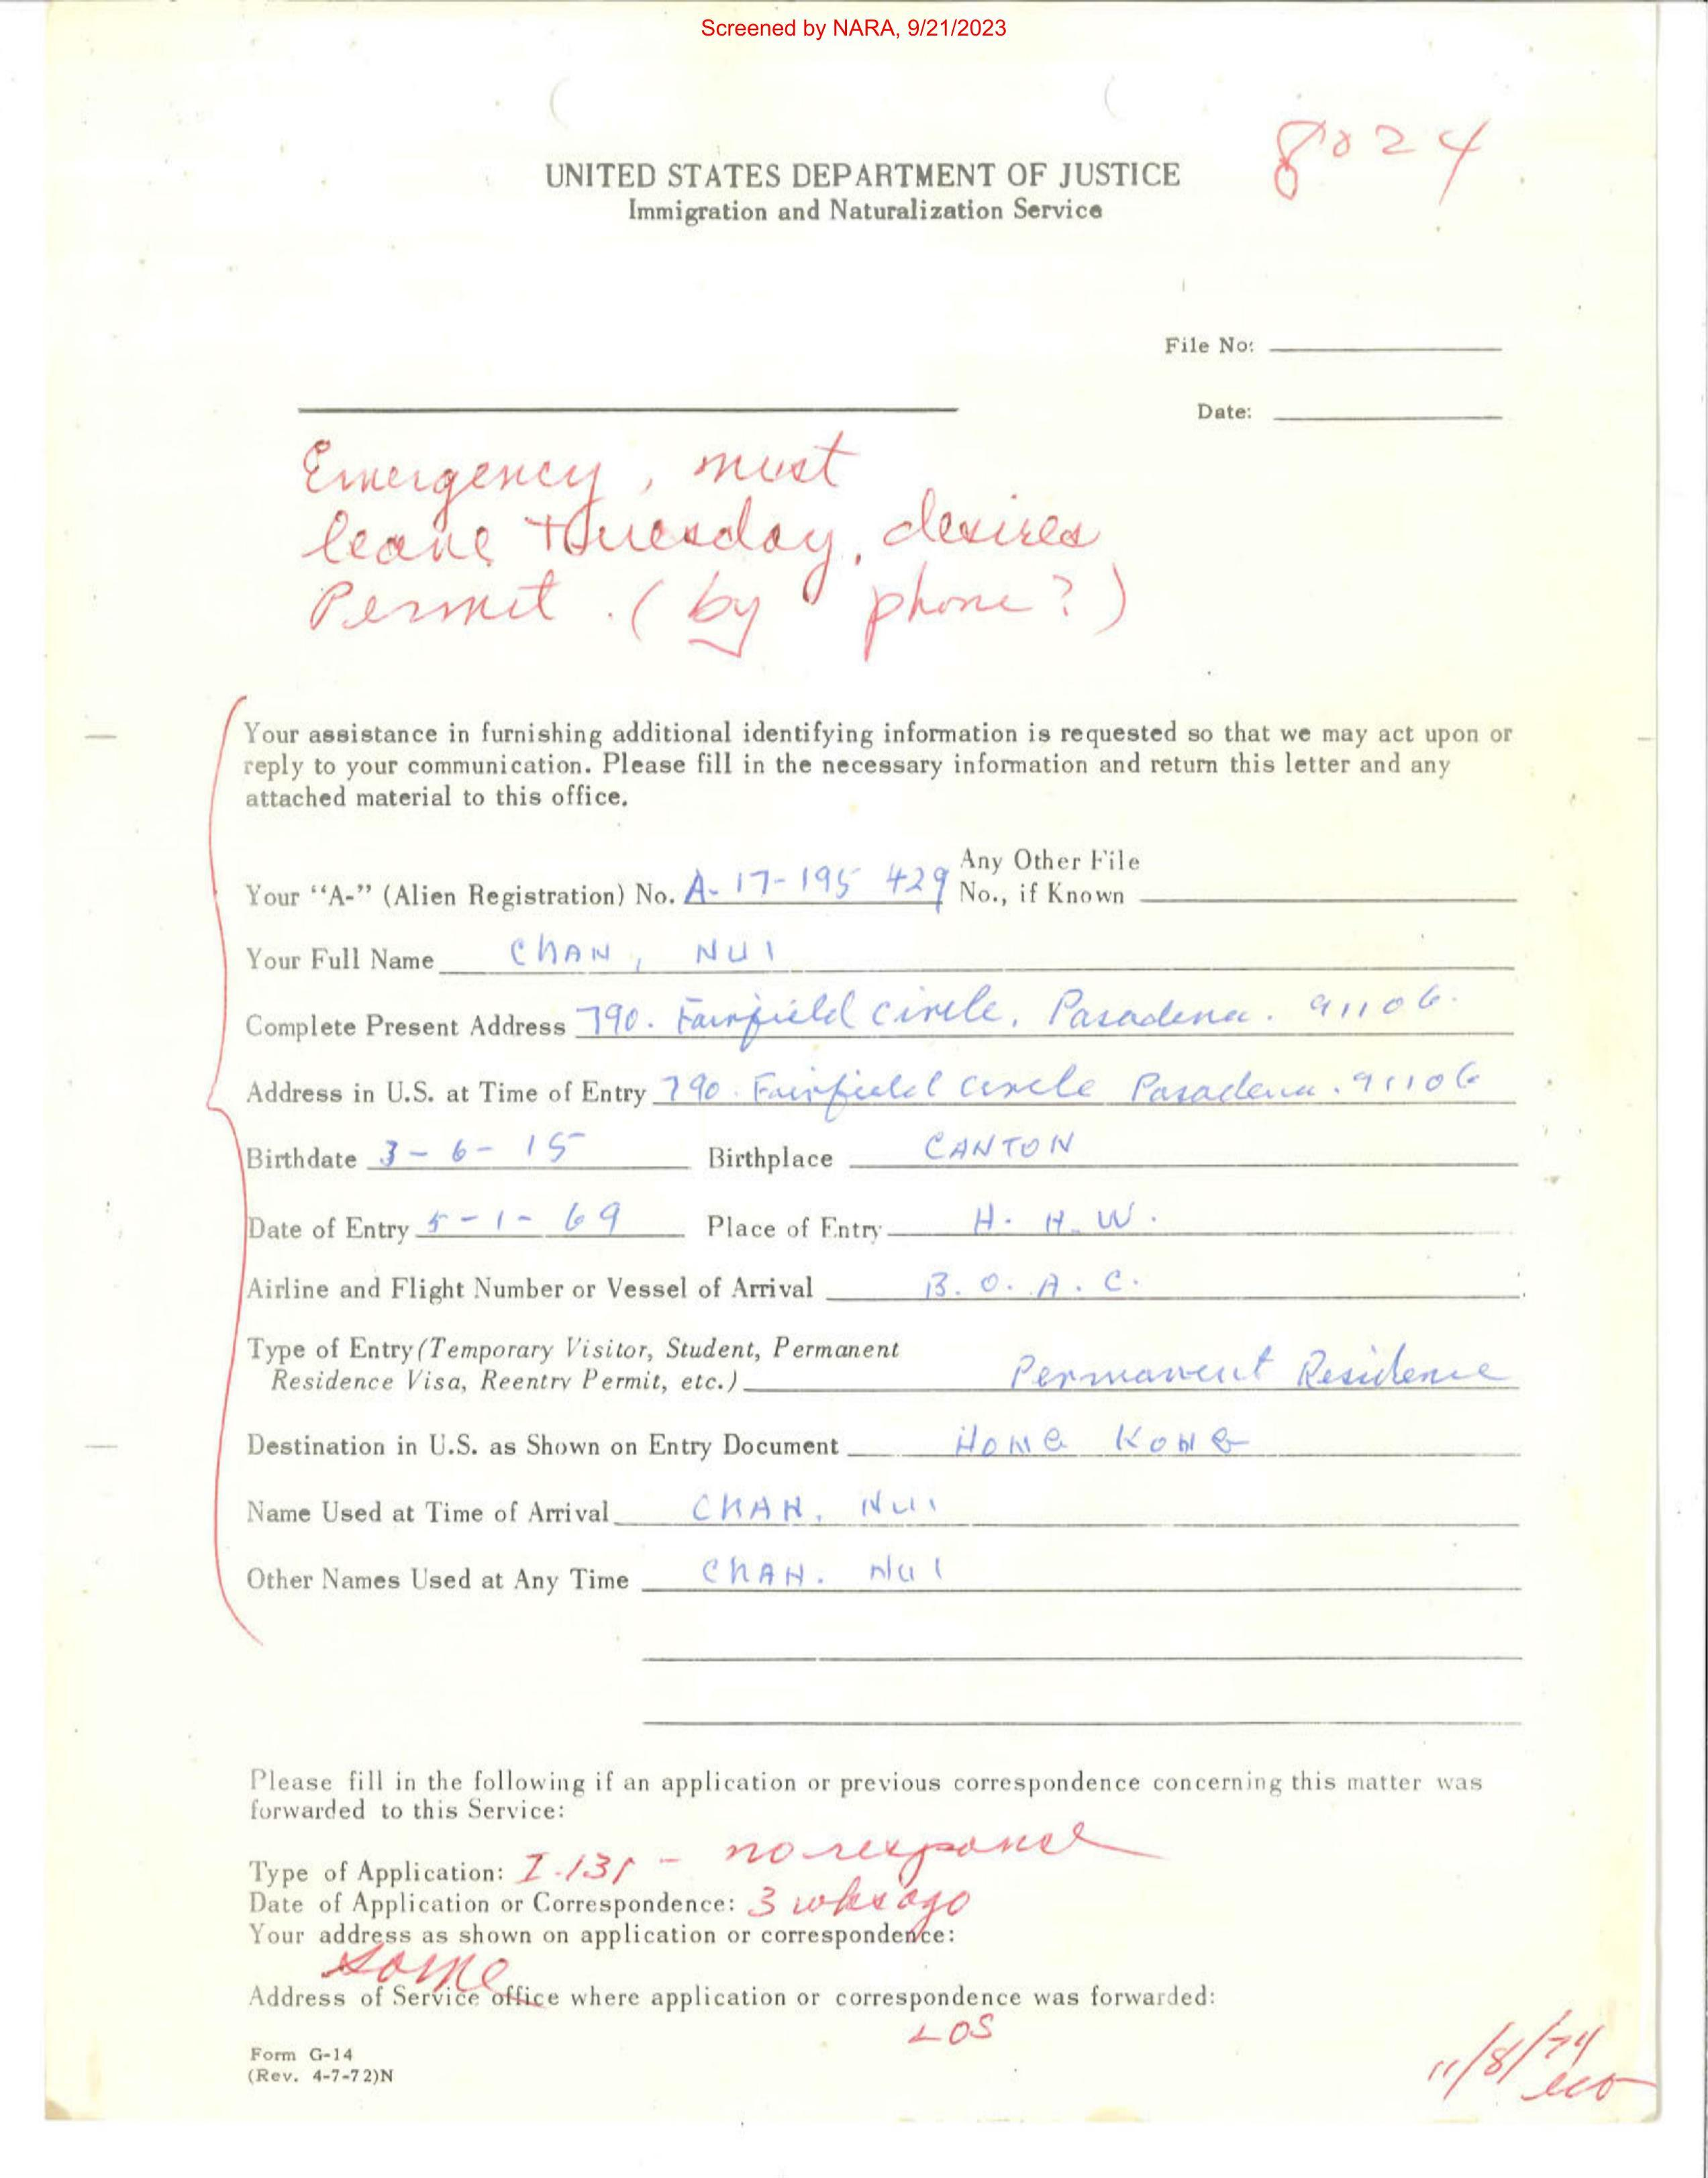 Screened by NARA, 9/21/2023
8024
UNITED STATES DEPARTMENT OF JUSTICE
Immigration and Naturalization Service
File No:
Date:
Emergency, must
leave Tuesday, desires
Permit. (by phone?)
Your assistance in furnishing additional identifying information is requested so that we may act upon or
reply to your communication. Please fill in the necessary information and return this letter and any
attached material to this office.
Any Other File
Your "A-" (Alien Registration) No. A-17-195 429 No., if Known
Your Full Name CHAN, NUI
Complete Present Address 790. Fairfield circle, Pasadena. 91106.
Address in U.S. at Time of Entry 790. Fairfield circle Pasadena. 91106
Birthdate 3-6-15 Birthplace CANTON
Date of Entry 5-1-69 Place of Entry H. H. W.
Airline and Flight Number or Vessel of Arrival B. O. A. C.
Type of Entry (Temporary Visitor, Student, Permanent
Residence Visa, Reentry Permit, etc.) Permanent Residence
Destination in U.S. as Shown on Entry Document HONG KONG
Name Used at Time of Arrival CHAN, NUI
Other Names Used at Any Time CHAN. NUI
Please fill in the following if an application or previous correspondence concerning this matter was
forwarded to this Service:
Type of Application: I-131 - no response
Date of Application or Correspondence: 3 wks ago
Your address as shown on application or correspondence:
same
Address of Service office where application or correspondence was forwarded:
LOS
Form G-14
(Rev. 4-7-72)N
11/8/74